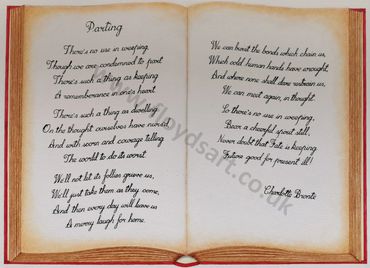 Parting
There's no use in weeping,
Though we are condemned to part
There's such a thing as keeping
A rememberance in one's heart
There's such a thing as dwelling
On the thought ourselves have nursed,
And with scorn and courage telling
The world to do its worst.
We'll not let its follies grieve us,
We'll just take them as they come,
And then every day will leave us
A merry laugh for home.
We can burst the bonds which chain us,
Which cold human hands have wrought,
And where none shall dare restrain us,
We can meet again, in thought.
So there's no use in weeping,
Bear a cheerful spirit still,
Never doubt that Fate is keeping
Future good for present ill!
Charlotte Brontë
www.floydsart.co.uk